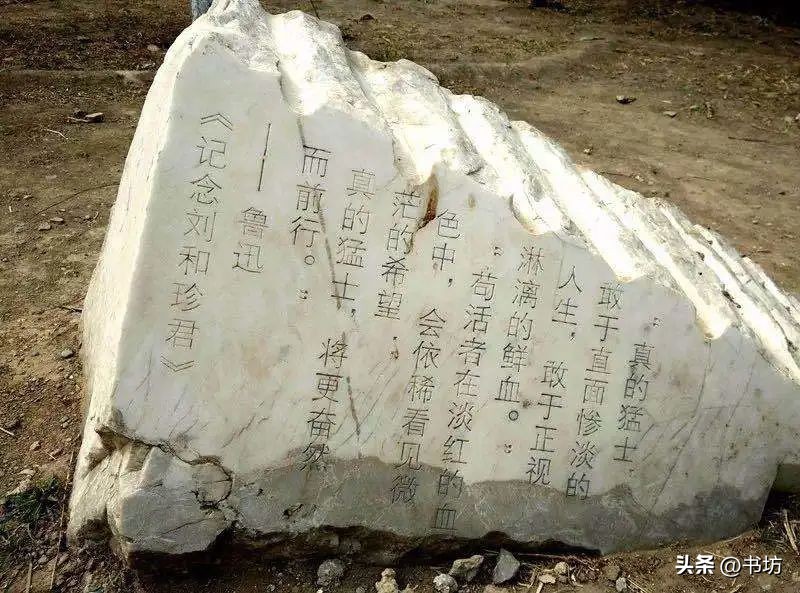 “真的猛士，
敢于直面惨淡的
人生，敢于正视
淋漓的鲜血。”
“苟活者在淡红的血
色中，会依稀看见微
茫的希望；
真的猛士，将更奋然
而前行。”
——鲁迅
《记念刘和珍君》
头条 @书坊